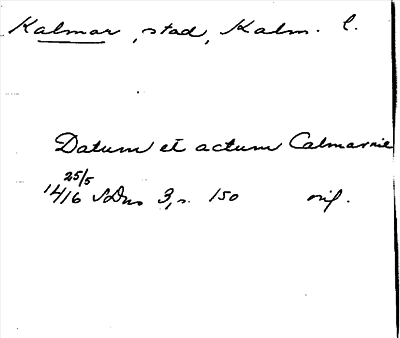 Kalmar, stad, Kalm. l.
Datum et actum Calmarnie
25/5
1416 SDns 3, s. 150 orig.